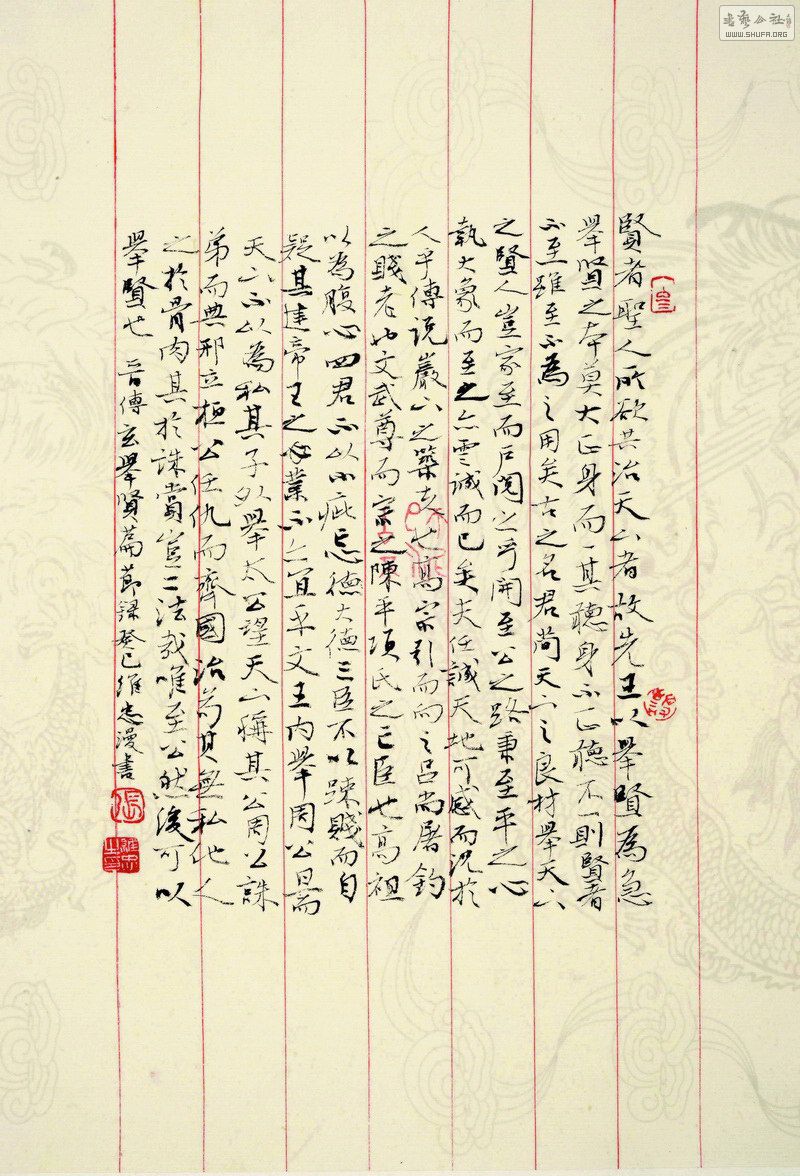 賢者聖人所欲共治天下者故先王以舉賢為急
舉賢之本莫大正身而一其聽身不正聽不一則賢者
不至雖至不為之用矣古之名君簡天下之良材舉天下
之賢人豈家至而戶閱之乎開至公之路秉至平之心
執大象而至之亦云誠而已矣夫任誠天地可感而況於
人乎傅說巖下之築夫也高宗引而向之呂尚屠釣
之賤老也文武尊而宗之陳平項氏之亡臣也高祖
以為腹心四君不以小疵忘德大德三臣不以疎賤而自
疑其建帝王之業不亦宜乎文王內舉周公旦而
天下不以為私其子外舉太公望天下稱其公周公誅
弟而典刑立桓公任仇而齊國治為其無私他人
之於骨肉其於誅賞豈二法哉唯至公然後可以
舉賢也 晉傅玄舉賢篇節錄癸巳維忠漫書
張
書藝公社
WWW.SHUFA.ORG